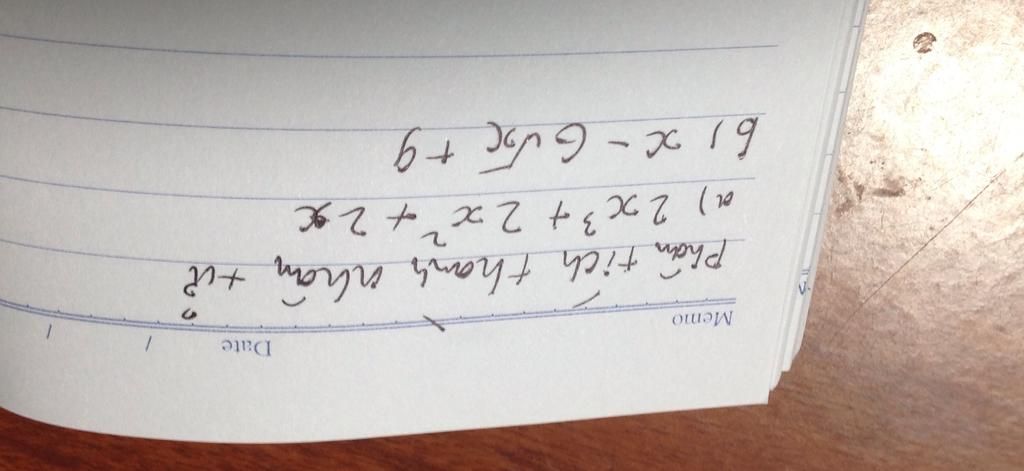 Memo Date / /
Phân tích thành nhân tử
a) 2x³ + 2x² + 2x
b) x - 6√x + 9